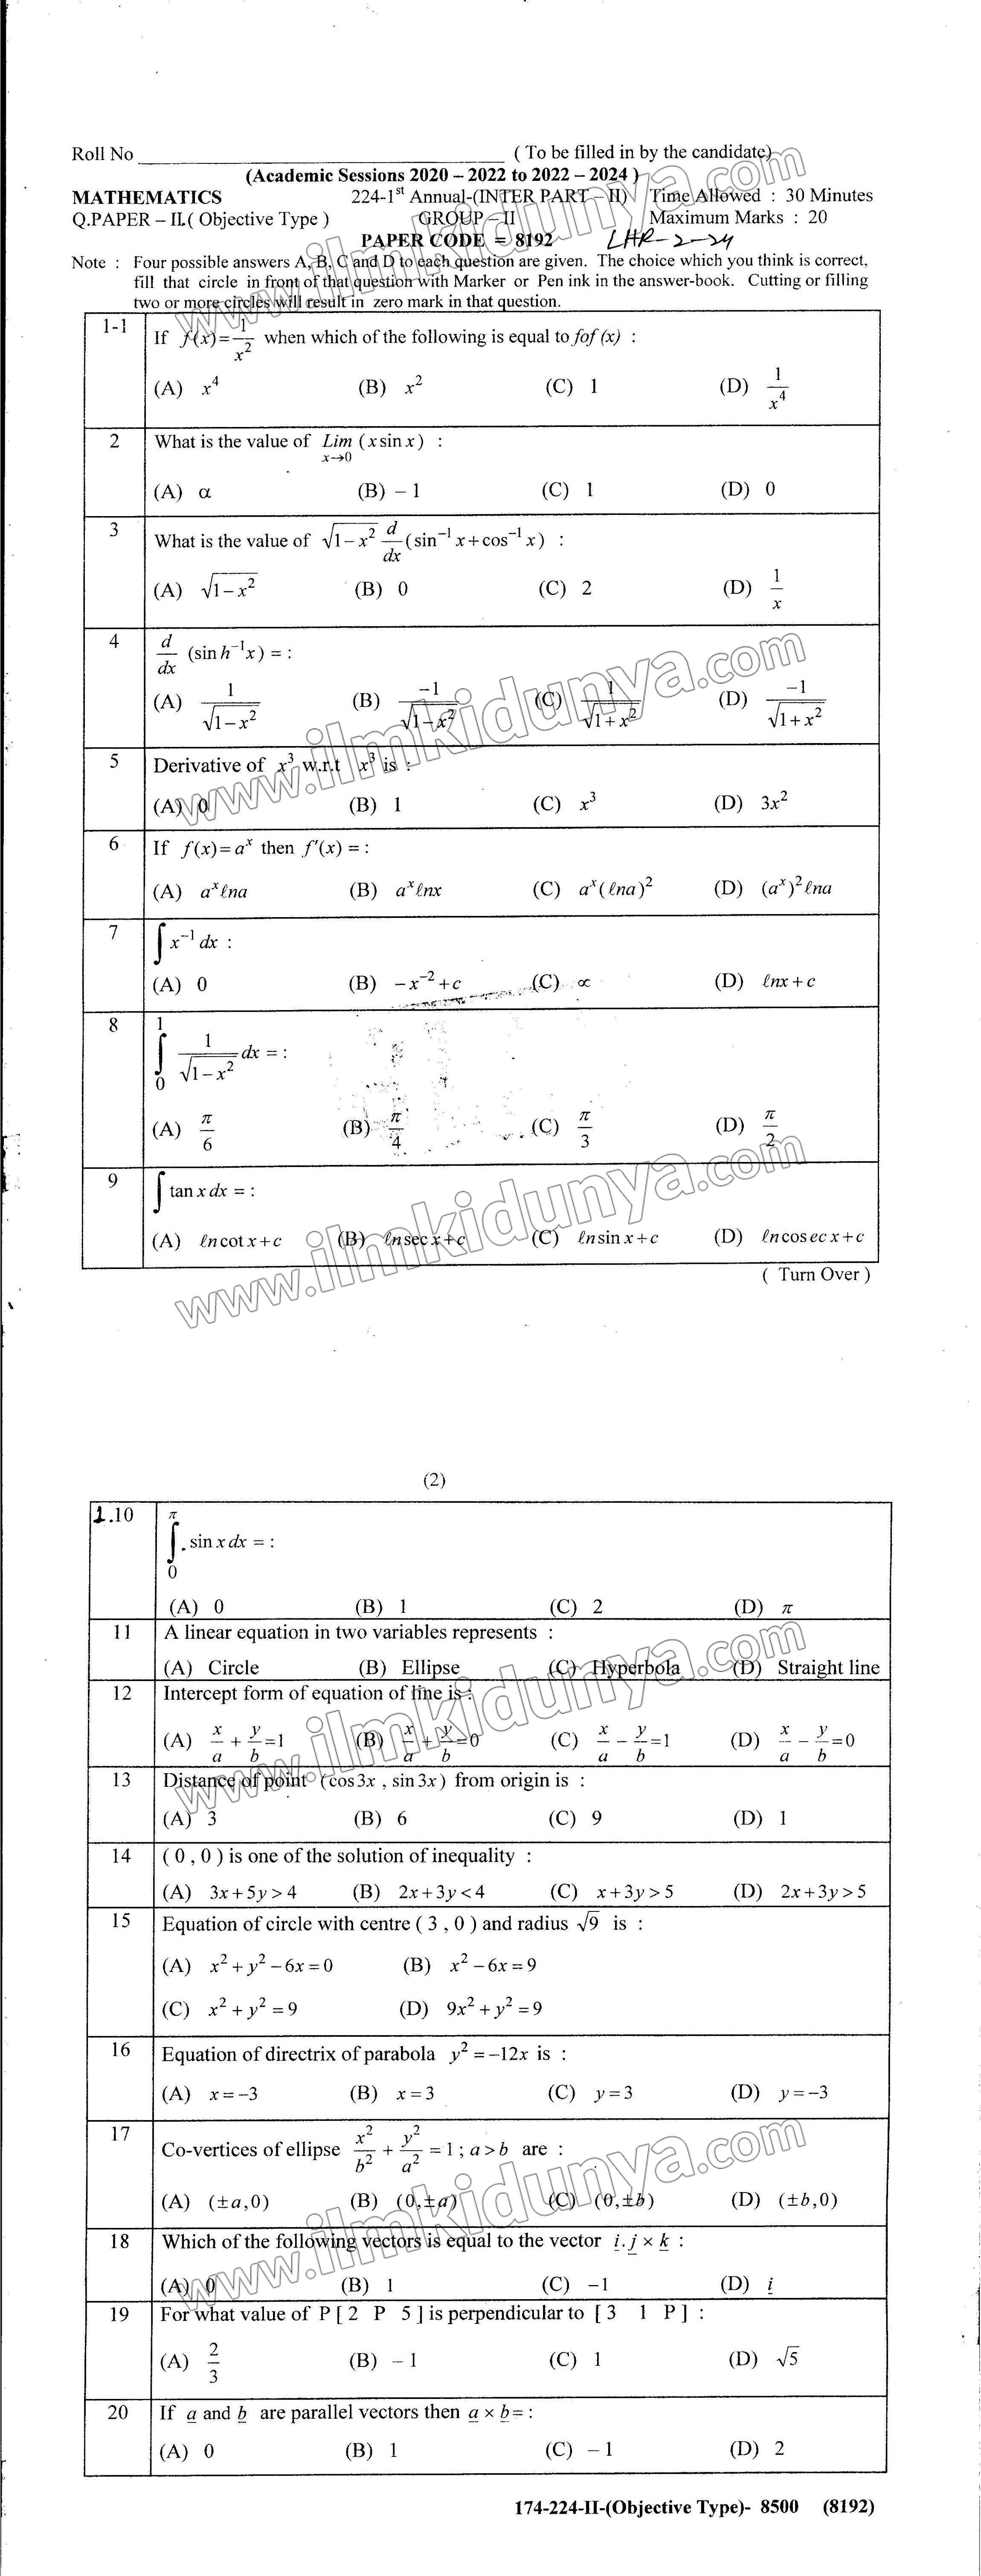 Roll No ______ ( To be filled in by the candidate)
(Academic Sessions 2020 – 2022 to 2022 – 2024 )
MATHEMATICS 224-1st Annual-(INTER PART – II) Time Allowed : 30 Minutes
Q.PAPER – II ( Objective Type ) GROUP – II Maximum Marks : 20
PAPER CODE = 8192 LHR-2-24
Note : Four possible answers A, B, C and D to each question are given. The choice which you think is correct,
fill that circle in front of that question with Marker or Pen ink in the answer-book. Cutting or filling
two or more circles will result in zero mark in that question.
1-1 If f(x)=1/x² when which of the following is equal to fof (x) :
(A) x⁴ (B) x² (C) 1 (D) 1/x⁴
2 What is the value of Lim x→0 (x sin x) :
(A) α (B) – 1 (C) 1 (D) 0
3 What is the value of √(1–x²) d/dx (sin⁻¹ x + cos⁻¹ x) :
(A) √(1–x²) (B) 0 (C) 2 (D) 1/x
4 d/dx (sin h⁻¹x) = :
(A) 1/√(1–x²) (B) –1/√(1–x²) (C) 1/√(1+x²) (D) –1/√(1+x²)
5 Derivative of x³ w.r.t x³ is :
(A) 0 (B) 1 (C) x³ (D) 3x²
6 If f(x)=aˣ then f′(x) = :
(A) aˣℓna (B) aˣℓnx (C) aˣ(ℓna)² (D) (aˣ)²ℓna
7 ∫ x⁻¹ dx :
(A) 0 (B) –x⁻²+c (C) ∝ (D) ℓnx+c
8 ∫₀¹ 1/√(1–x²) dx = :
(A) π/6 (B) π/4 (C) π/3 (D) π/2
9 ∫ tan x dx = :
(A) ℓn cot x+c (B) ℓn sec x+c (C) ℓn sin x+c (D) ℓn cosec x+c
( Turn Over )
(2)
1.10 ∫₀^π sin x dx = :
(A) 0 (B) 1 (C) 2 (D) π
11 A linear equation in two variables represents :
(A) Circle (B) Ellipse (C) Hyperbola (D) Straight line
12 Intercept form of equation of line is :
(A) x/a + y/b =1 (B) x/a + y/b =0 (C) x/a – y/b =1 (D) x/a – y/b =0
13 Distance of point (cos3x , sin3x) from origin is :
(A) 3 (B) 6 (C) 9 (D) 1
14 ( 0 , 0 ) is one of the solution of inequality :
(A) 3x+5y>4 (B) 2x+3y<4 (C) x+3y>5 (D) 2x+3y>5
15 Equation of circle with centre ( 3 , 0 ) and radius √9 is :
(A) x²+y²–6x=0 (B) x²–6x=9
(C) x²+y²=9 (D) 9x²+y²=9
16 Equation of directrix of parabola y²=–12x is :
(A) x=–3 (B) x=3 (C) y=3 (D) y=–3
17 Co-vertices of ellipse x²/b² + y²/a² =1 ; a>b are :
(A) (±a,0) (B) (0,±a) (C) (0,±b) (D) (±b,0)
18 Which of the following vectors is equal to the vector i.j × k :
(A) 0 (B) 1 (C) –1 (D) i
19 For what value of P [ 2 P 5 ] is perpendicular to [ 3 1 P ] :
(A) 2/3 (B) – 1 (C) 1 (D) √5
20 If a and b are parallel vectors then a × b= :
(A) 0 (B) 1 (C) – 1 (D) 2
174-224-II-(Objective Type)- 8500 (8192)
www.ilmkidunya.com
www.ilmkidunya.com
www.ilmkidunya.com
www.ilmkidunya.com
www.ilmkidunya.com